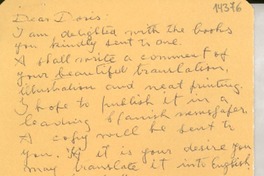 14376
Dear Doris:
I am delighted with the books
you kindly sent to me.
I shall write a comment of
your beautiful translation,
illustration and neat printing.
I hope to publish it in a
leading Spanish newspaper.
A copy will be sent to
you. If it is your desire you
may translate it into English